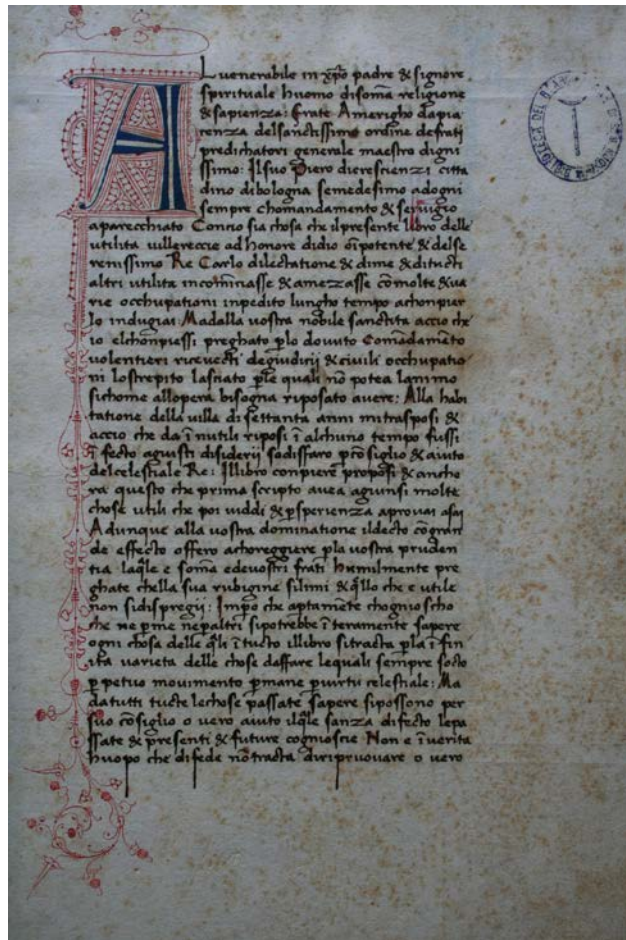 A Luenerabile in xp̄o padre & signore
spirituale huomo disom̄a religione
& sapienza: frate Amerigho dapia
cenza delsanctissimo ordine defrati
predichatori generale maestro digni
ssimo: Ilsuo Piero dicrescienzi citta
dino dibologna semedesimo adogni
sempre chomandamento & seruigio
aparecchiato Concio sia chosa che ilpresente libro delle
utilita uillereccie ad honore didio om̄ipotente & delse
renissimo Re Carlo dilectatione & dime & ditucti
altri utilita incominciasse & amezasse cōmolte & ua
rie occhupationi inpedito lungho tempo achonpier
lo indugiai Madalla uostra nobile sanctita accio che
io elchonpiessi preghato p̱lo douuto Comādamēto
uolentieri riceuecti degiudicij & ciuili occhupatio
ni lostrepito lasciato p̱le quali nō potea lanimo
sichome allopera bisogna riposato auere: Alla habi
tatione della uilla di settanta anni mitrasposi &
accio che da īnutili riposi ī alchuno tempo fussi
ī fecto aguisti disiderij sodisfaro p̱cōsiglio & aiuto
delcelestiale Re: Illibro conpiere proposi & ancho
ra questo che prima scripto auea agiunsi molte
chose utili che poi uiddi & p̱sperienza aprouai asai
Adunque alla uostra dominatione ildecto cōgran
de effecto offero achoreggiere p̱la uostra pruden
tia laq̄le e som̄a edeuostri frati humilmente pre
ghate chella sua rubigine silimi & q̄llo che e utile
non sidispregij: Imp̱o che aptamēte chognioscho
che ne p̱me nep̱altri sipotrebbe īteramente sapere
ogni chosa delle q̄li ī tucto illibro sitracta p̱la ī fin
ita varieta delle chose daffare lequali sempre socto
p̱petuo mouimento p̱mane p̱uirtu celestiale: Ma
datutti tucte lechose passate sapere sipossono per
suo cōsiglio o uero aiuto ilq̄le sanza difecto lepa
ssate & presenti & future cognioscie Non e ī uerita
huopo che difede nōtracta diripruouare o uero
BIBLIOTECA DEL